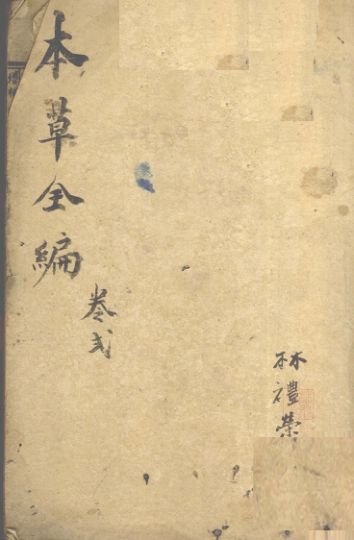 本草全編
卷弍
林禮榮